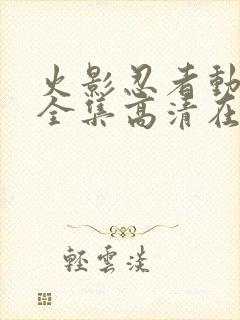 火影忍者動
全集高清在
輕雲淡